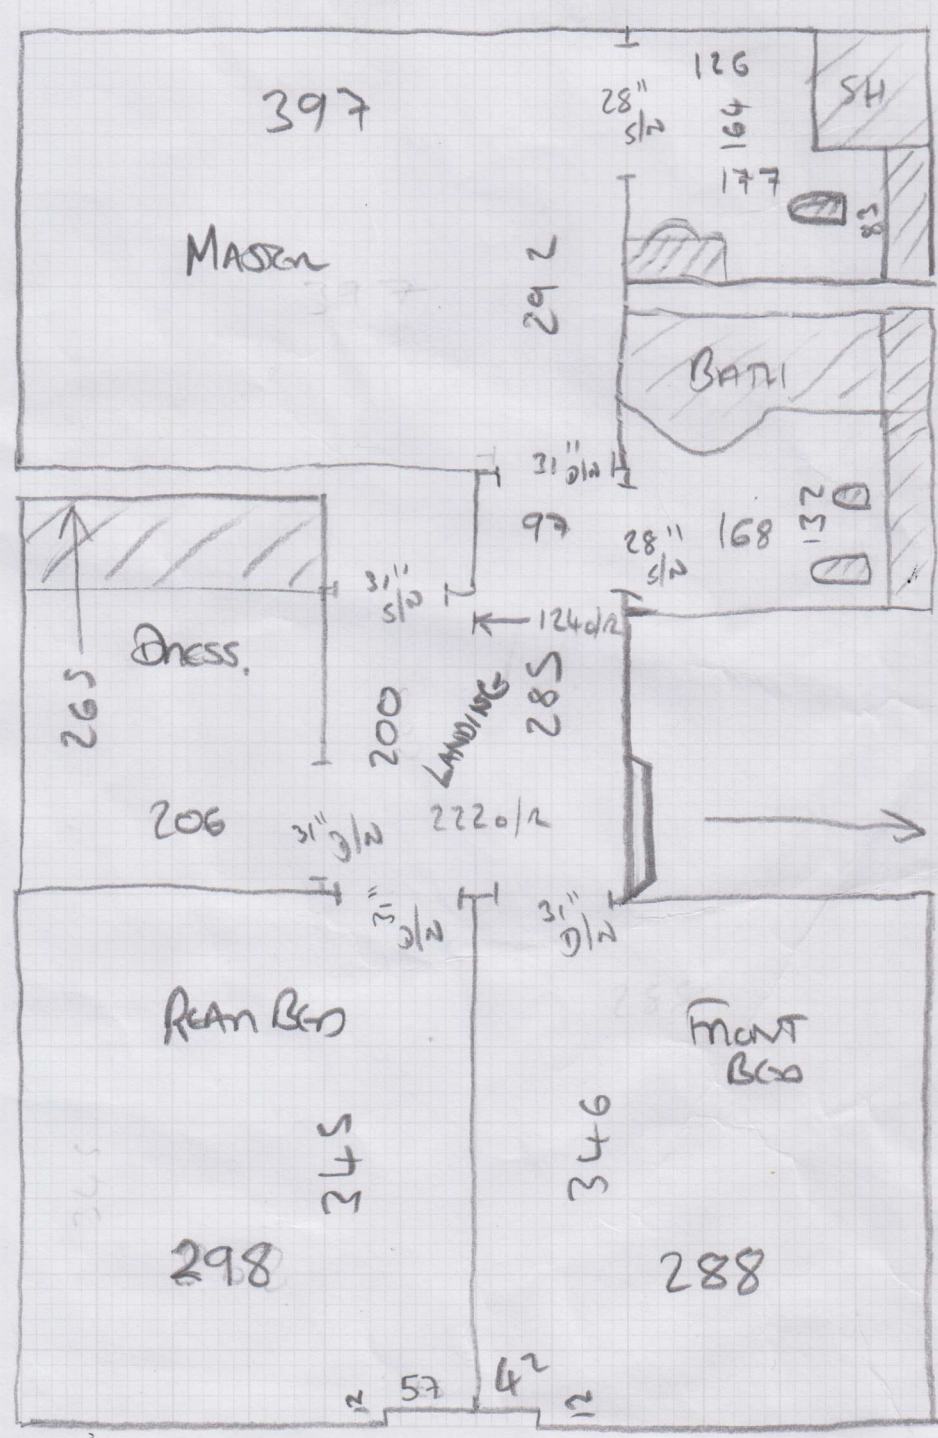 397
28"
S/N
126
164
177
SH
83
MASTER
292
BATH
31" D/N
97
28"
S/N
168
132
31"
S/N
124 O/R
DRESS.
265
200
LANDING
285
206
31"
D/N
222 O/R
31"
D/N
31"
D/N
REAR BED
FRONT
BED
345
346
298
288
12
57
42
12